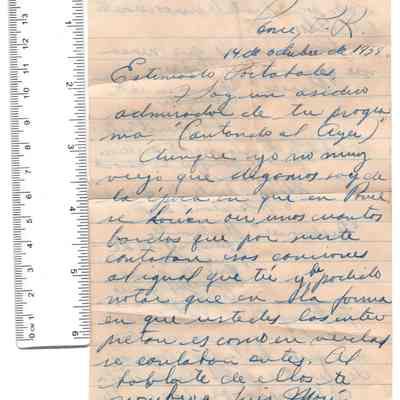 Ponce P.R.
14 de octubre de 1958.
Estimado Portabales,
Soy un asiduo
admirador de tu progra
ma "(Cantando al Ayer)"
Aunque yo no muy
viejo que digamos soy de
la época en que en Ponce
se hacían oir unos cuantos
bardos que por suerte
cantaban sus canciones
al igual que tú y he podido
notar que en la forma
en que ustedes las inter
pretan es como en verdad
se cantaban antes. Al
hablarte de ellos te
nombro